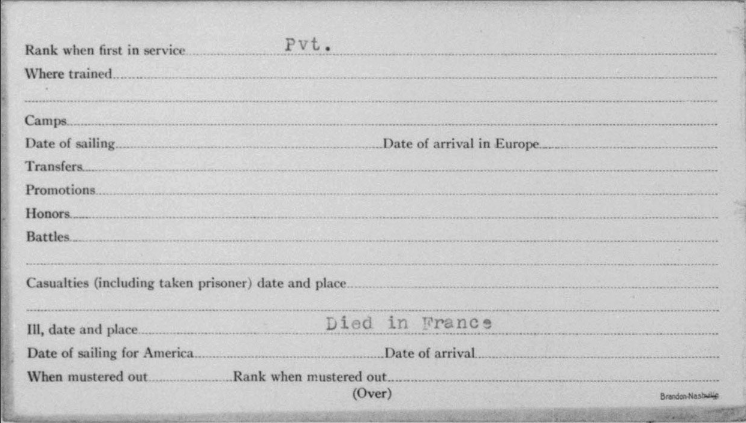 Rank when first in service Pvt.
Where trained
Camps
Date of sailing Date of arrival in Europe
Transfers
Promotions
Honors
Battles
Casualties (including taken prisoner) date and place
Ill, date and place Died in France
Date of sailing for America Date of arrival
When mustered out Rank when mustered out
(Over)
Brandon-Nashville